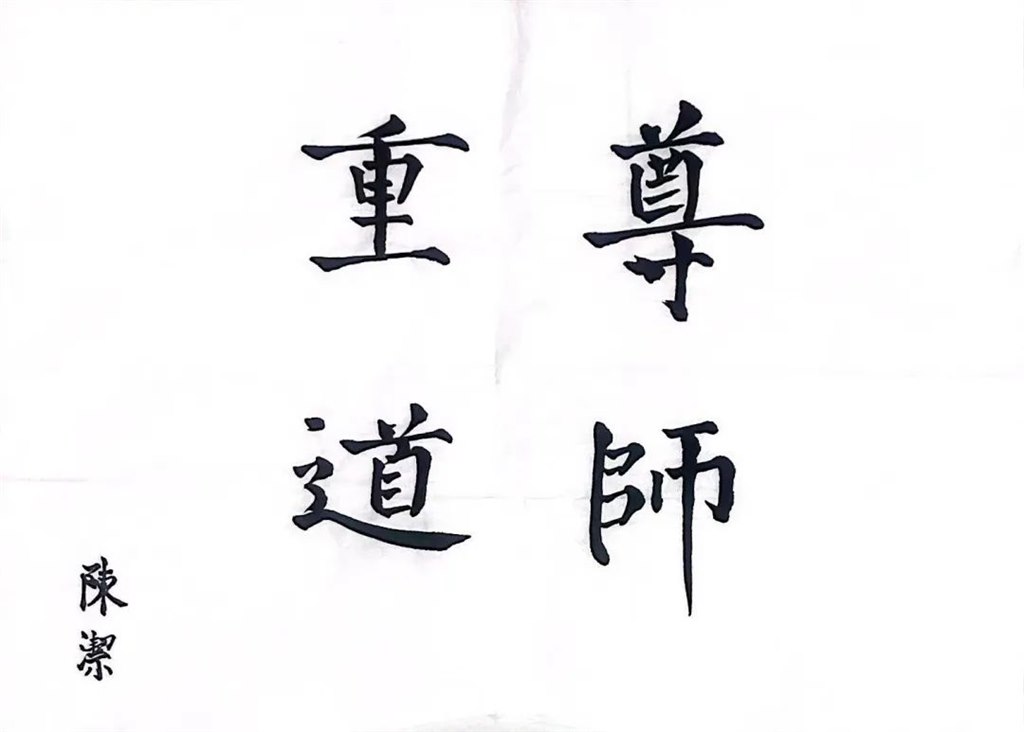 尊師
重道
陳潔